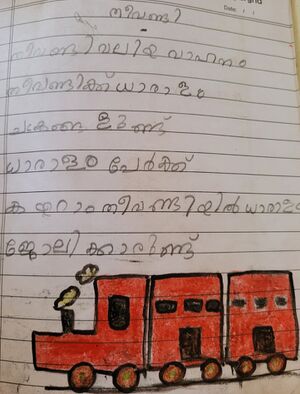 Date: / /
തീവണ്ടി
തീവണ്ടി വലിയ വാഹനം
തീവണ്ടിക്ക് ധാരാളം
ചക്രങ്ങളുണ്ട്
ധാരാളം പേർക്ക്
കയറാം തീവണ്ടിയിൽ ധാരാളം
ജോലിക്കാരുണ്ട്